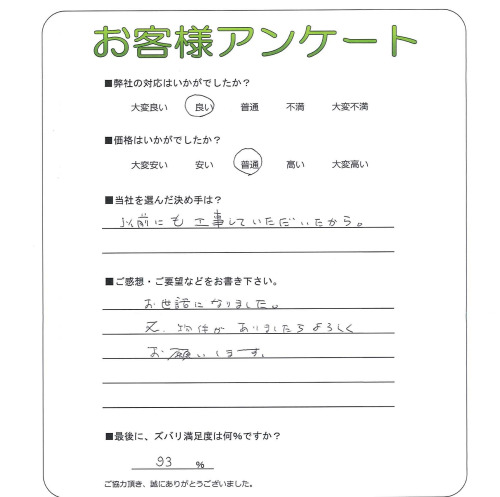 お客様アンケート
■弊社の対応はいかがでしたか？
大変良い 良い 普通 不満 大変不満
■価格はいかがでしたか？
大変安い 安い 普通 高い 大変高い
■当社を選んだ決め手は？
以前にも工事していただいたから。
■ご感想・ご要望などをお書き下さい。
お世話になりました。
又、物件がありましたらよろしく
お願いします。
■最後に、ズバリ満足度は何%ですか？
93 %
ご協力頂き、誠にありがとうございました。